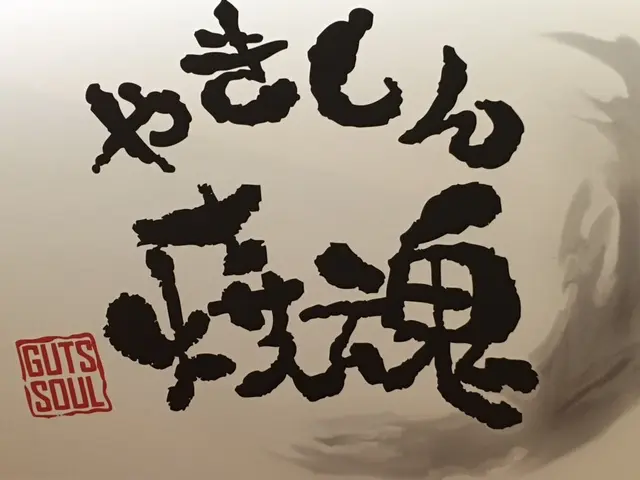 やきしん
魂
GUTS
SOUL